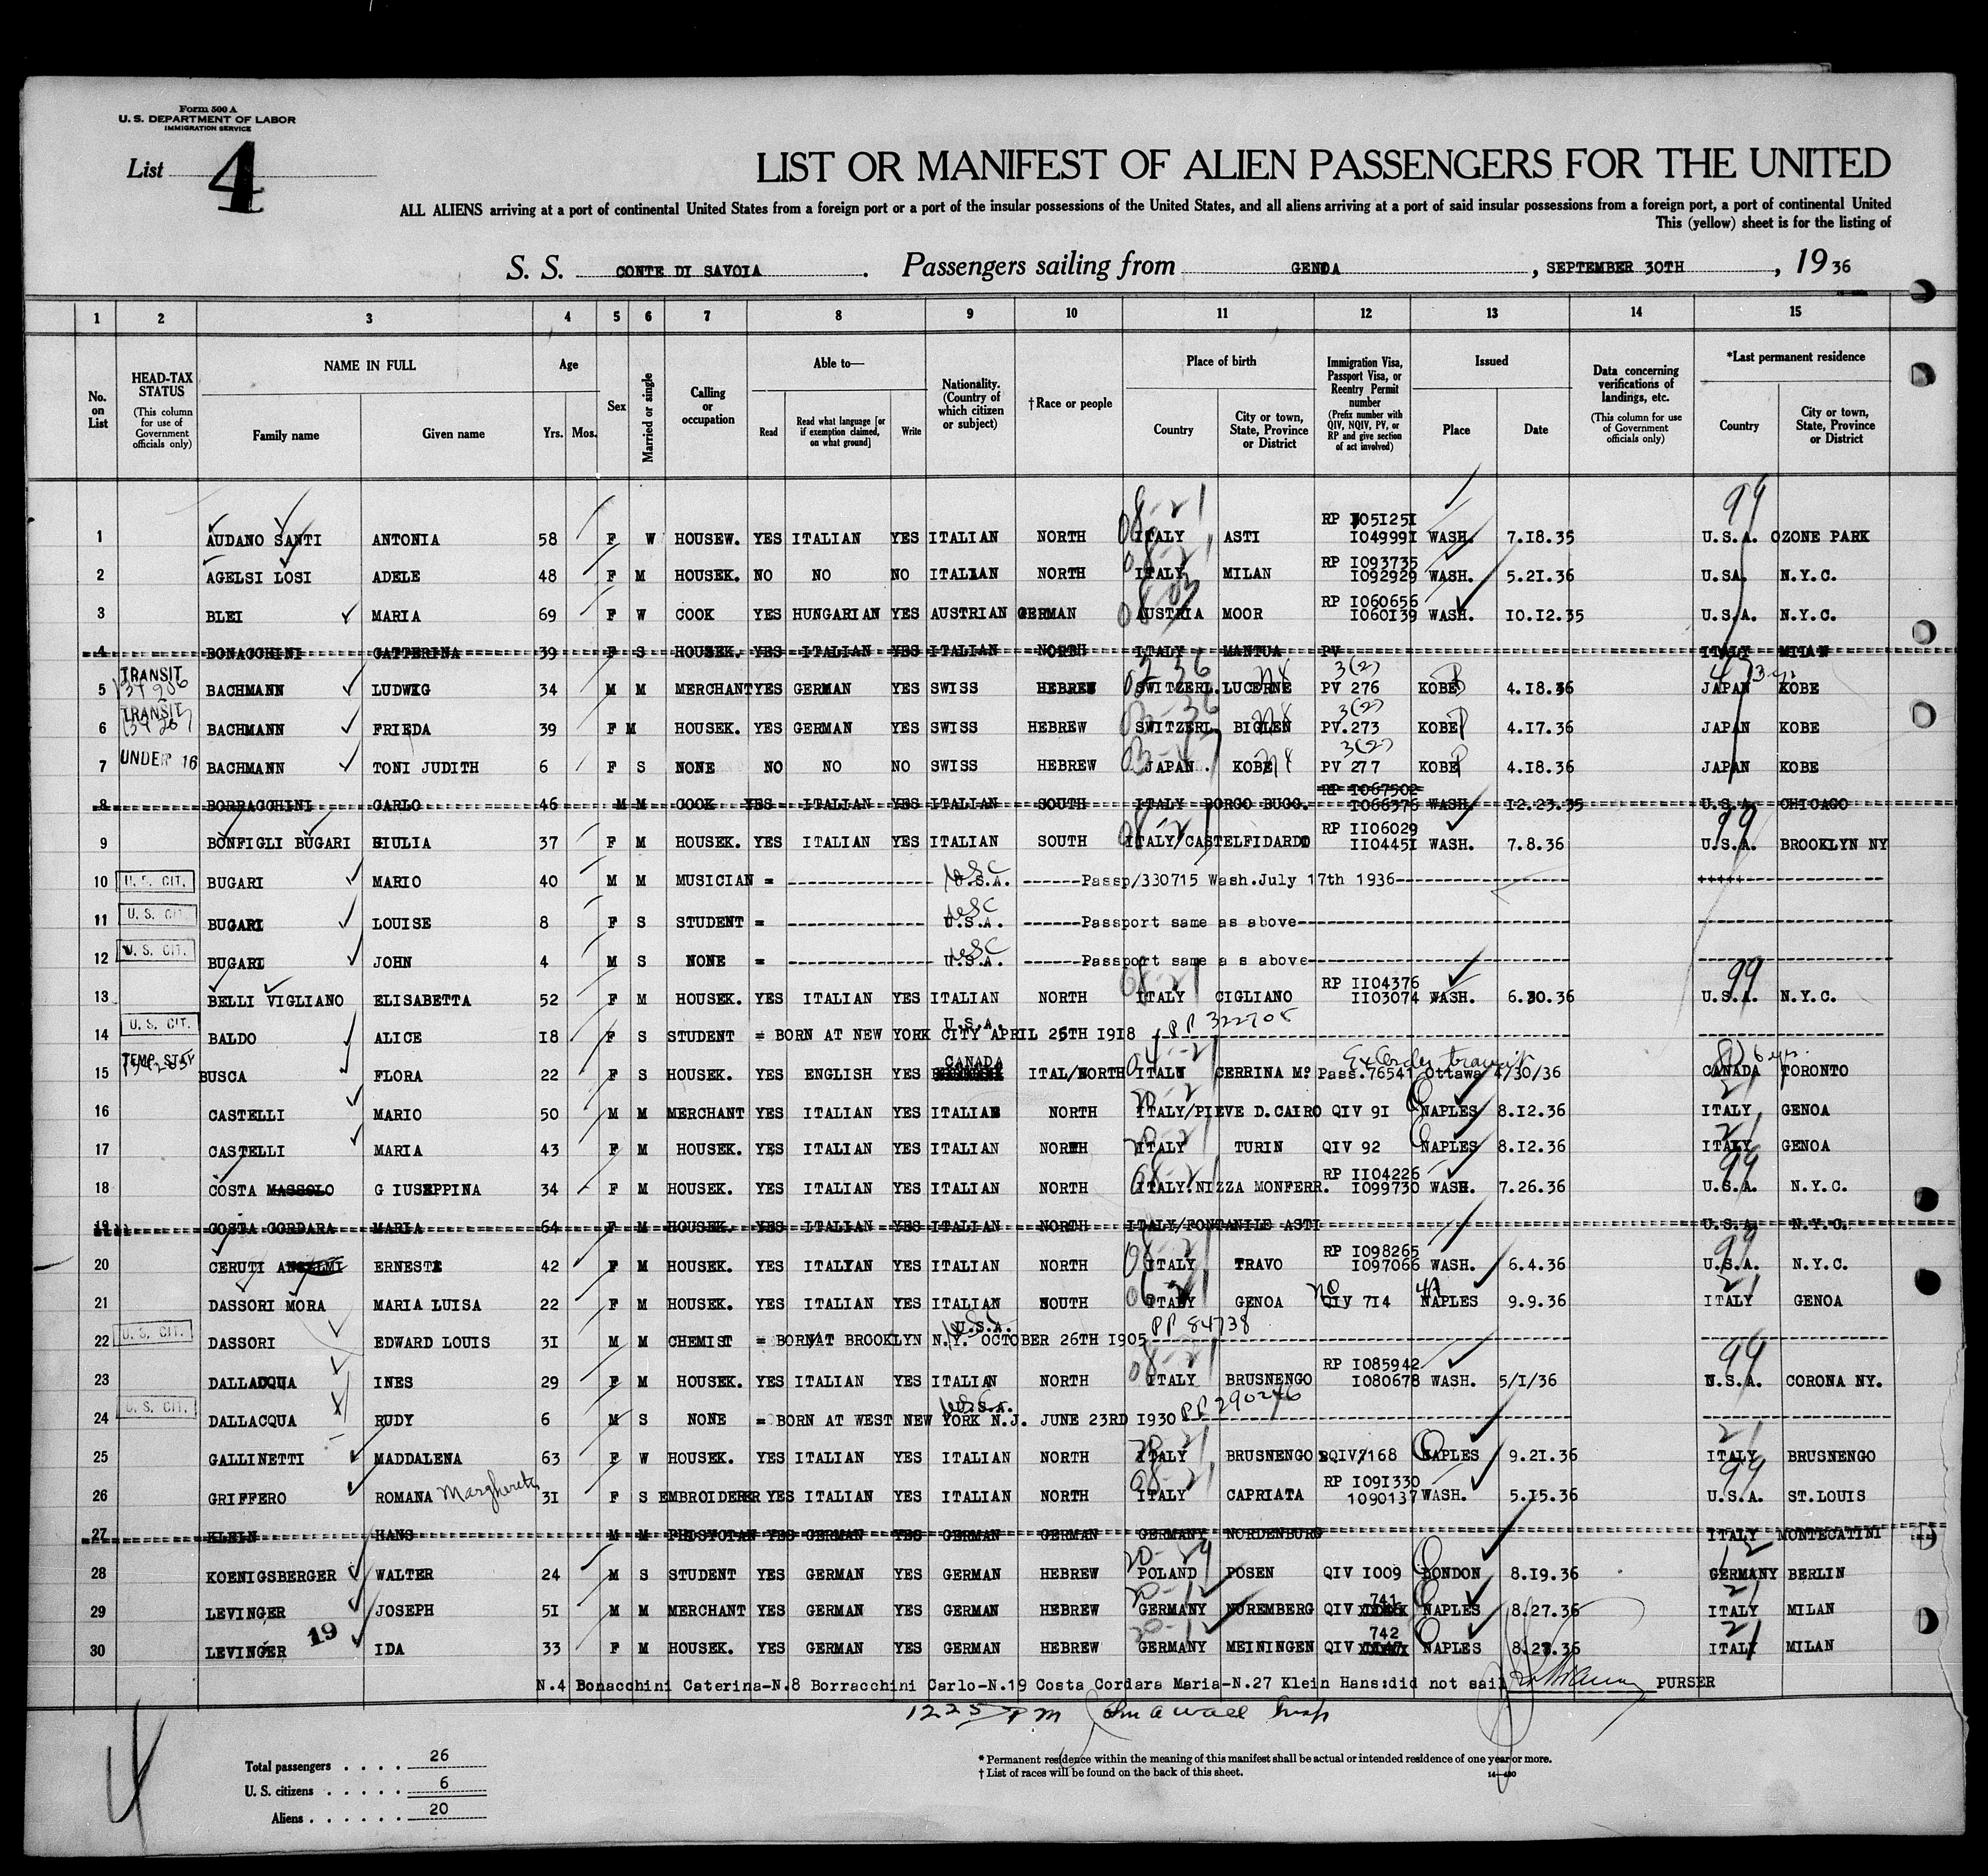 Form 500 A
U. S. DEPARTMENT OF LABOR
IMMIGRATION SERVICE
List 4
LIST OR MANIFEST OF ALIEN PASSENGERS FOR THE UNITED
ALL ALIENS arriving at a port of continental United States from a foreign port or a port of the insular possessions of the United States, and all aliens arriving at a port of said insular possessions from a foreign port, a port of continental United
This (yellow) sheet is for the listing of
S. S. CONTE DI SAVOIA. Passengers sailing from GENOA, SEPTEMBER 30TH, 1936
1 2 3 4 5 6 7 8 9 10 11 12 13 14 15
No. on List
HEAD-TAX STATUS (This column for use of Government officials only)
NAME IN FULL
Family name
Given name
Age
Yrs. Mos.
Sex
Married or single
Calling or occupation
Able to—
Read
Read what language [or if exemption claimed, on what ground]
Write
Nationality. (Country of which citizen or subject)
†Race or people
Place of birth
Country
City or town, State, Province or District
Immigration Visa, Passport Visa, or Reentry Permit number (Prefix number with QIV, NQIV, PV, or RP and give section of act involved)
Issued
Place
Date
Data concerning verifications of landings, etc. (This column for use of Government officials only)
*Last permanent residence
Country
City or town, State, Province or District
1 AUDANO SANTI ANTONIA 58 F W HOUSEW. YES ITALIAN YES ITALIAN NORTH 08-21 ITALY ASTI RP 1051251 1049991 WASH. 7.18.35 99 U.S.A. OZONE PARK
2 AGELSI LOSI ADELE 48 F M HOUSEK. NO NO NO ITALIAN NORTH 08-21 ITALY MILAN RP 1093735 1092929 WASH. 5.21.36 U.SA. N.Y.C.
3 BLEI MARIA 69 F W COOK YES HUNGARIAN YES AUSTRIAN GERMAN 08-03 AUSTRIA MOOR RP 1060656 1060139 WASH. 10.12.35 U.S.A. N.Y.C.
4 BONACCHINI CATTERINA 39 F S HOUSEK. YES ITALIAN YES ITALIAN NORTH ITALY MANTUA PV ITALY MILAN
5 TRANSIT BACHMANN LUDWIG 34 M M MERCHANT YES GERMAN YES SWISS HEBREW 03-36 SWITZERL. LUCERNE 3(2) PV 276 KOBE 4.18.36 JAPAN KOBE
6 TRANSIT BACHMANN FRIEDA 39 F M HOUSEK. YES GERMAN YES SWISS HEBREW 03-36 SWITZERL. BIGLEN 3(2) PV.273 KOBE 4.17.36 JAPAN KOBE
7 UNDER 16 BACHMANN TONI JUDITH 6 F S NONE NO NO NO SWISS HEBREW JAPAN. KOBE 3(2) PV 277 KOBE 4.18.36 JAPAN KOBE
8 BORRACCHINI CARLO 46 M M COOK YES ITALIAN YES ITALIAN SOUTH ITALY BORGO BUGG. RP 1067502 1066376 WASH. 12.23.35 U.S.A. CHICAGO
9 BONFIGLI BUGARI GIULIA 37 F M HOUSEK. YES ITALIAN YES ITALIAN SOUTH 08-21 ITALY/CASTELFIDARDO RP 1106029 1104451 WASH. 7.8.36 99 U.S.A. BROOKLYN NY
10 U. S. CIT. BUGARI MARIO 40 M M MUSICIAN = USC U.S.A. ------Passp/330715 Wash.July 17th 1936------ +++++
11 U. S. CIT. BUGARI LOUISE 8 F S STUDENT = USC U.S.A. ------Passport same as above------
12 U. S. CIT. BUGARI JOHN 4 M S NONE = USC U.S.A. ------Passport same a s above------
13 BELLI VIGLIANO ELISABETTA 52 F M HOUSEK. YES ITALIAN YES ITALIAN NORTH 08-21 ITALY CIGLIANO RP 1104376 1103074 WASH. 6.30.36 99 U.S.A. N.Y.C.
14 U. S. CIT. BALDO ALICE 18 F S STUDENT = BORN AT NEW YORK CITY APRIL 25TH 1918 U.S.A. PP 322708
15 TEMP. STAY BUSCA FLORA 22 F S HOUSEK. YES ENGLISH YES CANADA ITAL/NORTH 04-21 ITALY CERRINA Mo Pass.76541 Ottawa 4/30/36 CANADA TORONTO
16 CASTELLI MARIO 50 M M MERCHANT YES ITALIAN YES ITALIAN NORTH 20-21 ITALY/PIEVE D.CAIRO QIV 91 NAPLES 8.12.36 21 ITALY GENOA
17 CASTELLI MARIA 43 F M HOUSEK. YES ITALIAN YES ITALIAN NORTH 20-21 ITALY TURIN QIV 92 NAPLES 8.12.36 21 ITALY GENOA
18 COSTA MASSOLO G IUSEPPINA 34 F M HOUSEK. YES ITALIAN YES ITALIAN NORTH 08-21 ITALY.NIZZA MONFERR. RP 1104226 1099730 WASH. 7.26.36 99 U.S.A. N.Y.C.
19 COSTA CORDARA MARIA 64 F M HOUSEK. YES ITALIAN YES ITALIAN NORTH ITALY/FONTANILE ASTI U.S.A. N.Y.C.
20 CERUTI ANSELMI ERNESTA 42 F M HOUSEK. YES ITALIAN YES ITALIAN NORTH 08-21 ITALY TRAVO RP 1098265 1097066 WASH. 6.4.36 99 U.S.A. N.Y.C.
21 DASSORI MORA MARIA LUISA 22 F M HOUSEK. YES ITALIAN YES ITALIAN SOUTH 06-21 ITALY GENOA QIV 714 NAPLES 9.9.36 21 ITALY GENOA
22 U. S. CIT. DASSORI EDWARD LOUIS 31 M M CHEMIST = BORN AT BROOKLYN N.Y. OCTOBER 26TH 1905 U.S.A. PP 84738
23 DALLACQUA INES 29 F M HOUSEK. YES ITALIAN YES ITALIAN NORTH 08-21 ITALY BRUSNENGO RP 1085942 1080678 WASH. 5/1/36 99 U.S.A. CORONA NY.
24 U. S. CIT. DALLACQUA RUDY 6 M S NONE = BORN AT WEST NEW YORK N.J. JUNE 23RD 1930 U.S.A. PP 290246
25 GALLINETTI MADDALENA 63 F W HOUSEK. YES ITALIAN YES ITALIAN NORTH 20-21 ITALY BRUSNENGO QIV/7168 NAPLES 9.21.36 21 ITALY BRUSNENGO
26 GRIFFERO ROMANA Margherita 31 F S EMBROIDERER YES ITALIAN YES ITALIAN NORTH 08-21 ITALY CAPRIATA RP 1091330 1090137 WASH. 5.15.36 99 U.S.A. ST.LOUIS
27 KLEIN HANS M M YES GERMAN YES GERMAN GERMAN GERMANY NORDENBURG ITALY MONTECATINI
28 KOENIGSBERGER WALTER 24 M S STUDENT YES GERMAN YES GERMAN HEBREW POLAND POSEN QIV 1009 LONDON 8.19.36 12 GERMANY BERLIN
29 LEVINGER JOSEPH 51 M M MERCHANT YES GERMAN YES GERMAN HEBREW 20-12 GERMANY NUREMBERG QIV 741 NAPLES 8.27.36 21 ITALY MILAN
30 LEVINGER 19 IDA 33 F M HOUSEK. YES GERMAN YES GERMAN HEBREW 20-12 GERMANY MEININGEN QIV 742 NAPLES 8.27.36 21 ITALY MILAN
N.4 Bonacchini Caterina-N.8 Borracchini Carlo-N.19 Costa Cordara Maria-N.27 Klein Hans:did not sail PURSER
1225 PM
4
Total passengers . . . . 26
U. S. citizens . . . . . 6
Aliens . . . . . . 20
* Permanent residence within the meaning of this manifest shall be actual or intended residence of one year or more.
† List of races will be found on the back of this sheet.
14—430